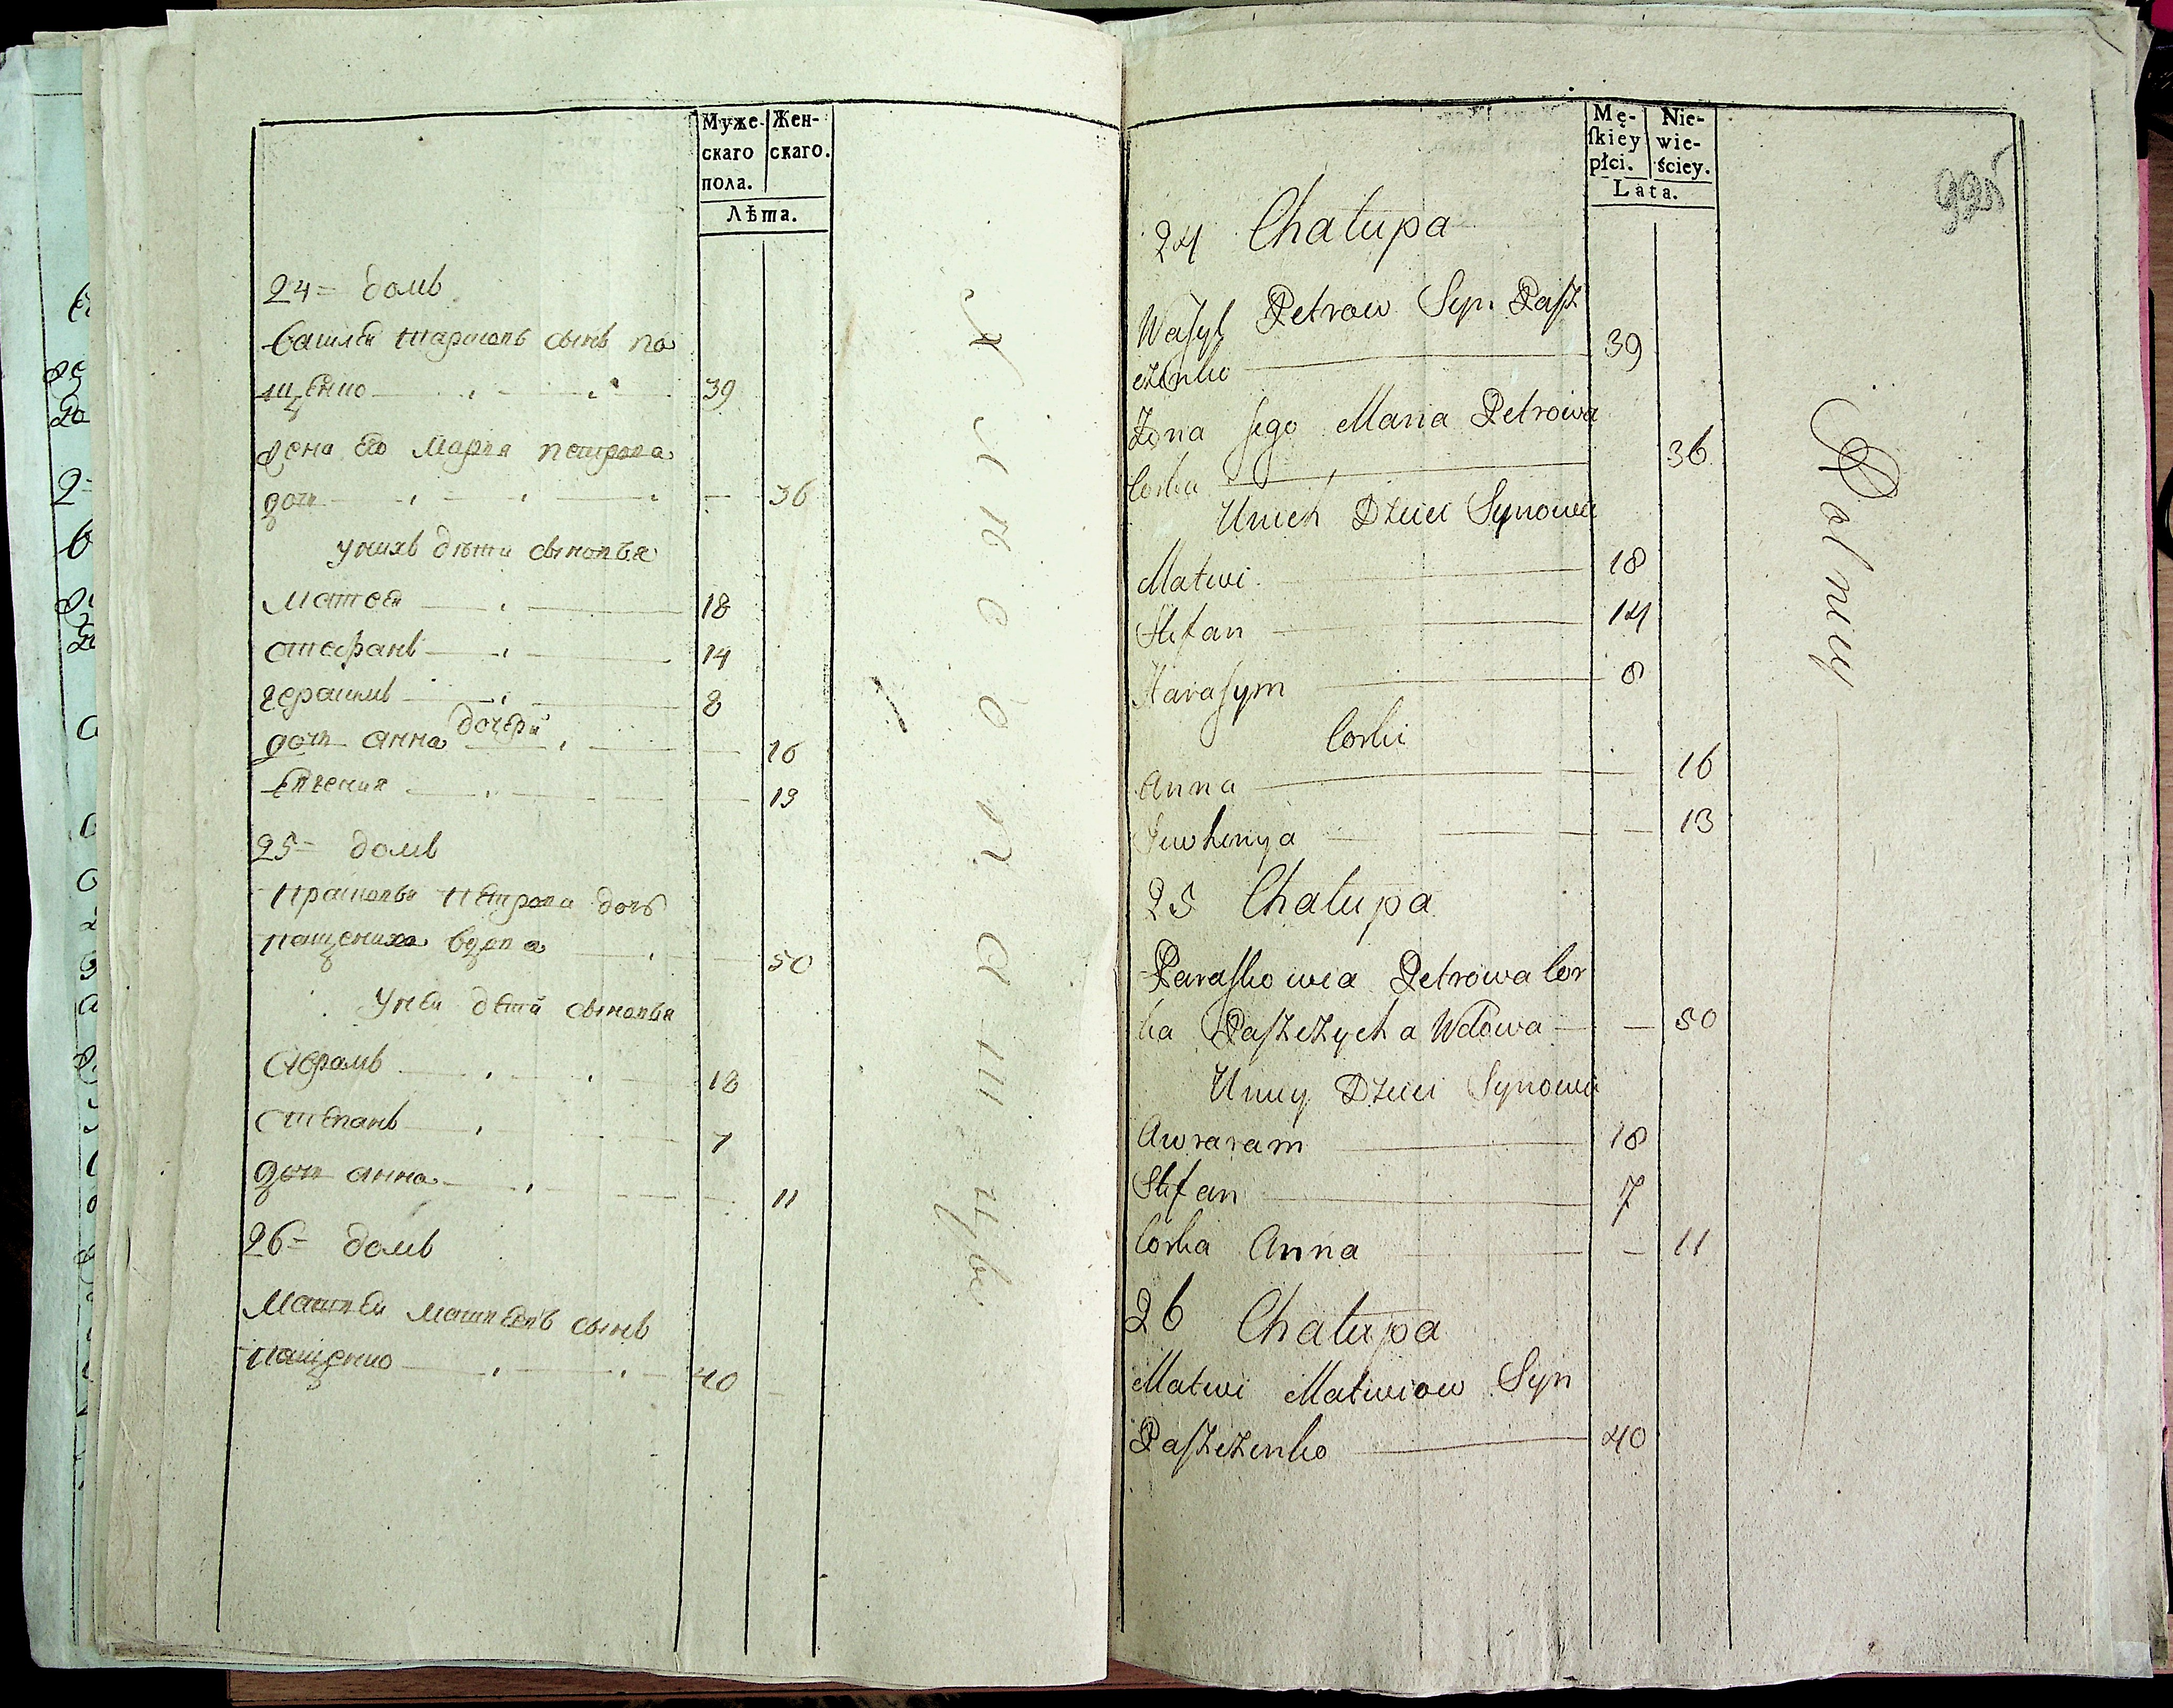 Муже-
скаго
пола.
Жен-
скаго.
Лѣта.
24= домъ
Василей сынъ Па
щенко 39
жена его Марея петрова
дочь 36
унихъ дѣти сыновья
Матвей 18
стефанъ 14
герасимъ 8
дочери
дочь анна 16
Евгения 13
25= домъ
Прасковья Петрова дочь
пащениха вдова 50
Унеи дети сыновья
Авраамъ 18
Степанъ 7
дочь анна 11
26= домъ
Матвей Матвеевъ сынъ
пащенко 40
Mę-
skiey
płci.
Nie-
wie-
ściey.
Lata.
24 Chałupa
Wasyl Petrow Syn Pasz
czenko 39
Zona jego Maria Petrowa
Corka 36
Unich Dzieci Synowie
Matwi 18
Stefan 14
Harasym 8
Corki
Anna 16
Jewhenya 13
25 Chałupa
Paraskowia Petrowa Cor
ka Paszczycha Wdowa 50
Uniey Dzieci Synowie
Awraram 18
Stefan 7
Corka Anna 11
26 Chałupa
Matwi Matwiow Syn
Paszczenko 40
Rolniy